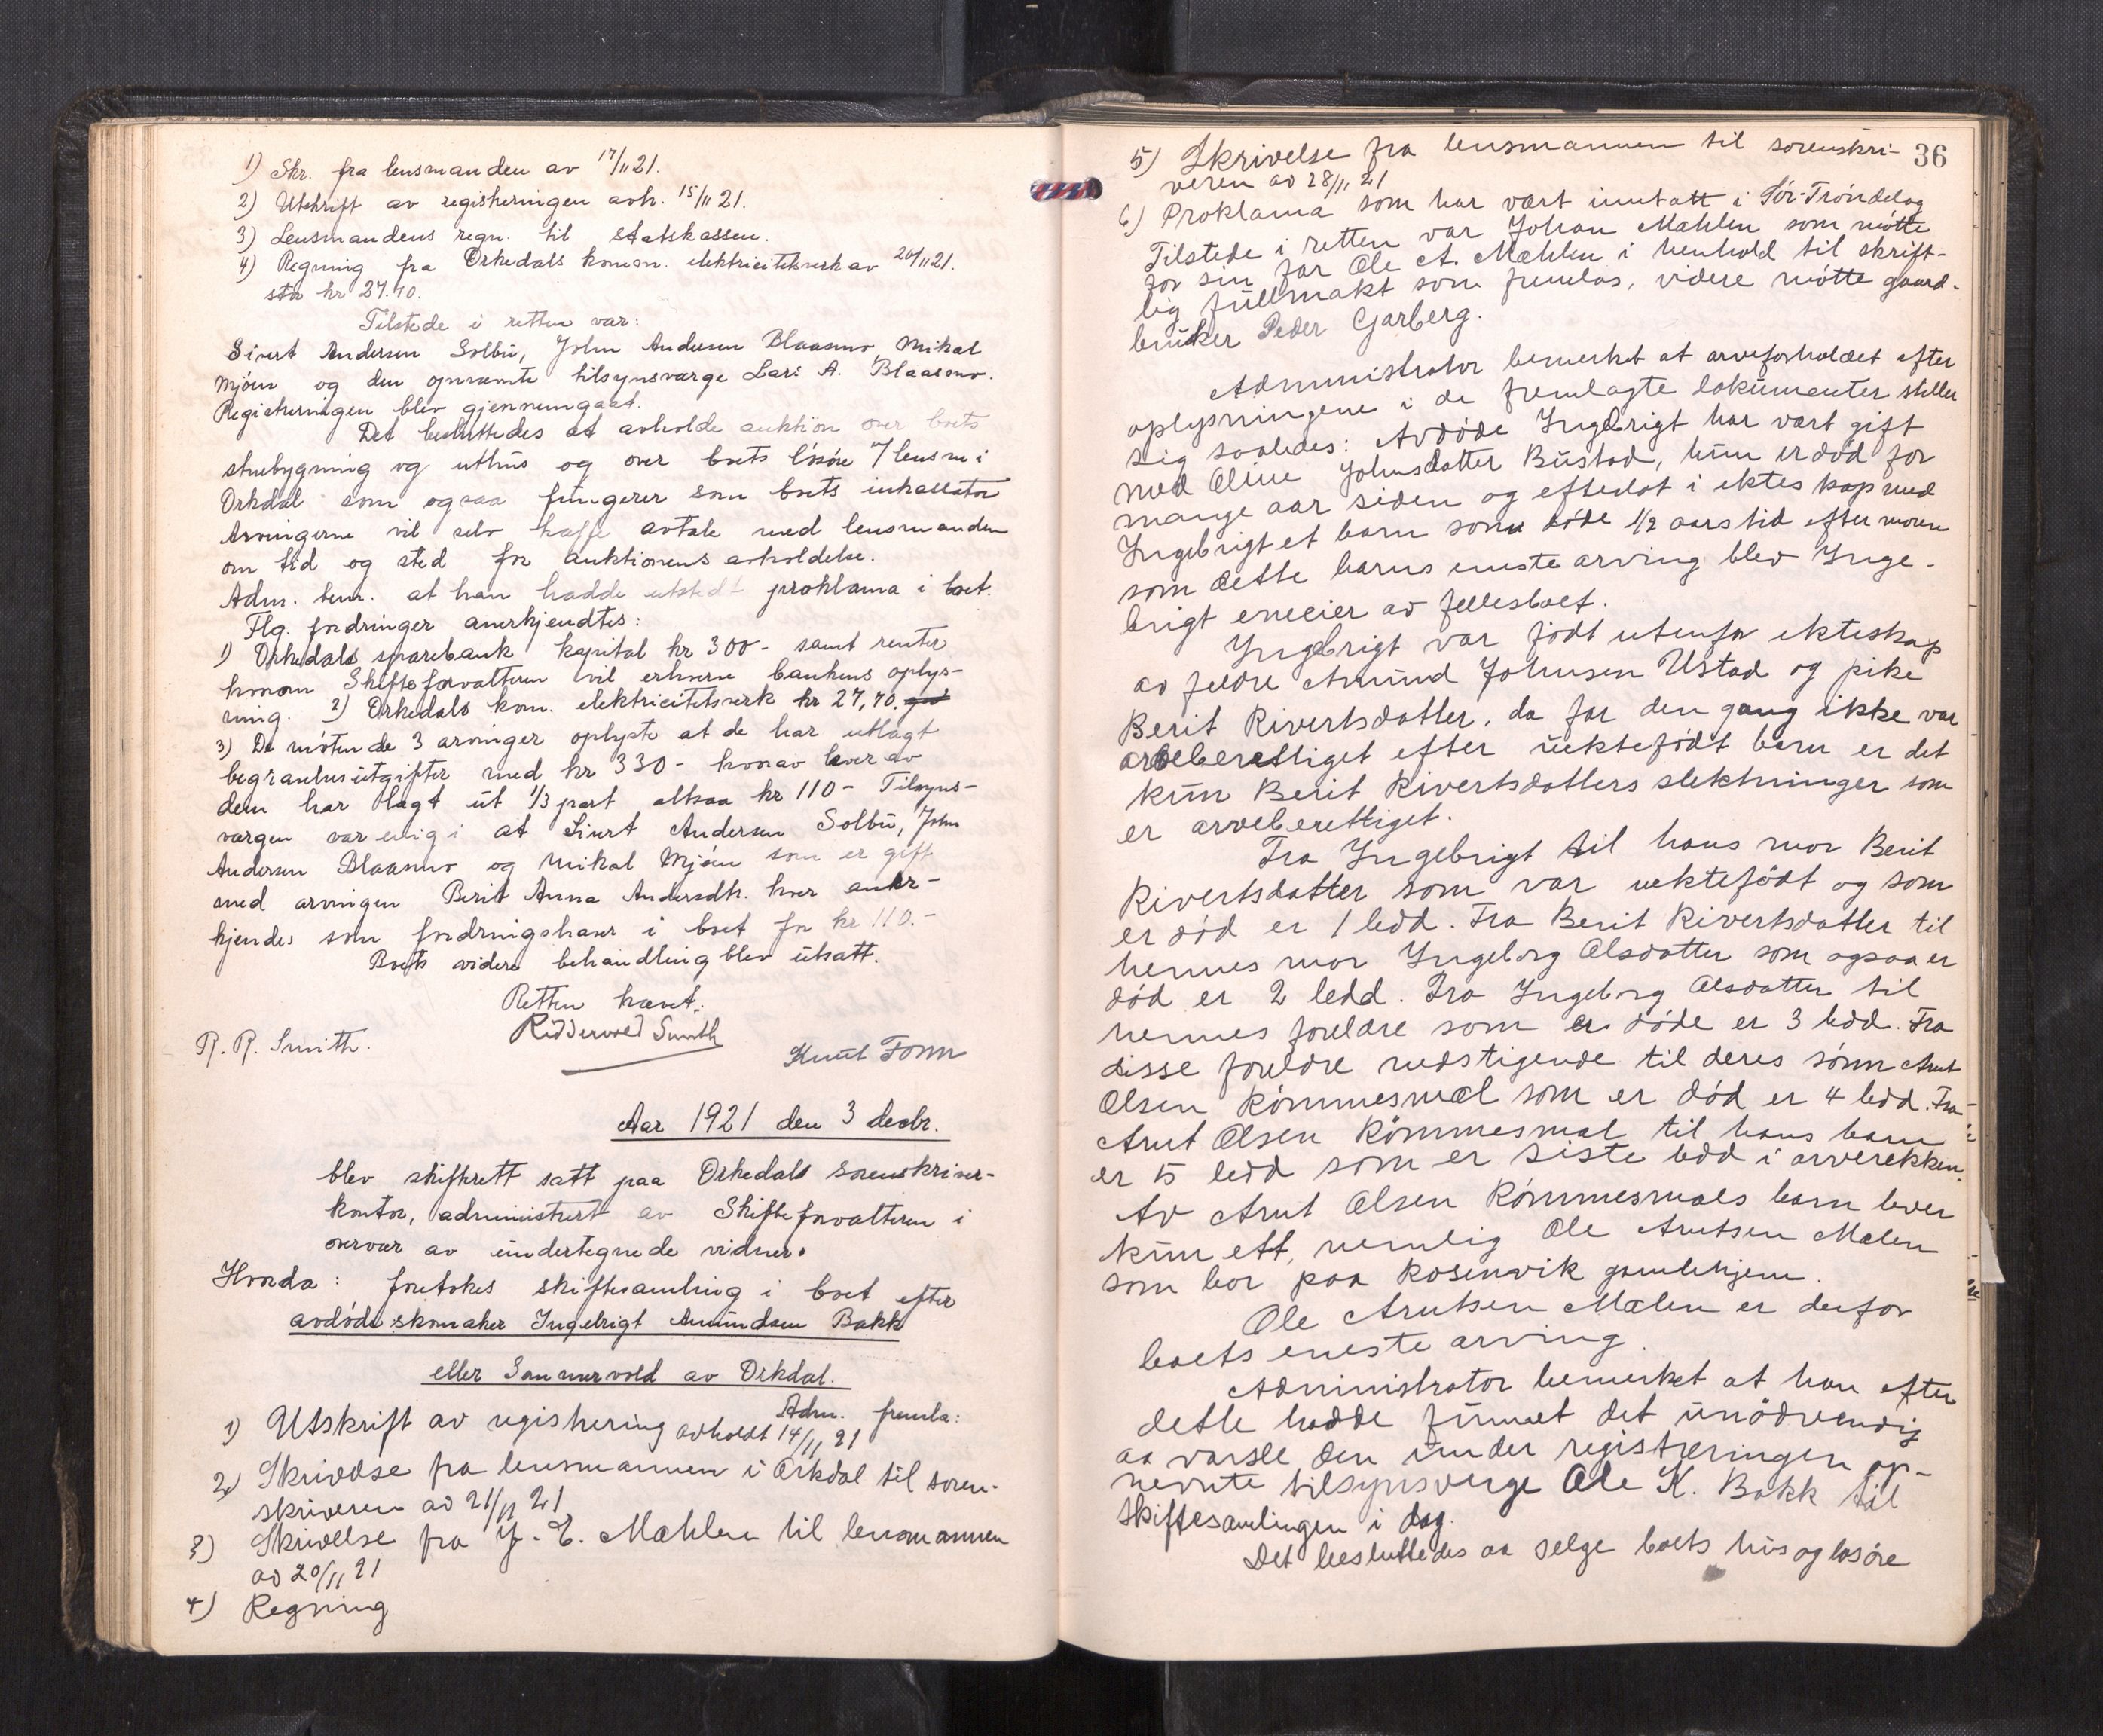 1) Skr. fra lensmanden av 17/11 21.
2) Utskrift av registreringen avh. 15/11 21.
3) Lensmandens regn. til statskassen.
4) Regning fra Orkedals komm. elektricitetsverk av 26/11 21.
stor kr 27.70.
Tilstede i retten var:
Sivert Andersen Solbu, John Andersen Blaasmo, Mikal
Mjøen og den opnævnte tilsynsværge Lars A. Blaasmo.
Registreringen blev gjennemgaat.
Det besluttedes at avholde auktion over boets
stuebygning og uthus og over boets løsøre v/ lensm i
Orkdal som ogsaa fungerer som boets inkassator
Arvingerne vil selv træffe avtale med lensmanden
om tid og sted for auktionens avholdelse.
Adm. bem. at han hadde utstedt proklama i boet.
Flg. fordringer anerkjendtes:
1) Orkedals sparebank kapital kr 300- samt renter
hvorom Skifteforvalteren vil erhverve bankens oplys-
ning. 2) Orkedals kom. elektricitetsverk kr 27,70.
3) De møtende 3 arvinger oplyste at de har utlagt
begravelsesutgifter med kr 330- hvorav hver av
dem har lagt ut 1/3 part altsaa kr 110- Tilsyns-
værgen var enig i at Sivert Andersen Solbu, John
Andersen Blaasmo og Mikal Mjøen som er gift
med arvingen Berit Anna Andersdtr. hver aner-
kjendes som fordringshaver i boet for kr 110.-
Boets videre behandling blev utsatt.
Retten hævet.
Ridderwold Smith
R. R. Smith.
Knut Fonn
Aar 1921 den 3 decbr.
blev skifterett satt paa Orkedals sorenskriver-
kontor, administrert av Skifteforvalteren i
overvær av undertegnede vidner.
Hvorda: foretokes skiftesamling i boet efter
avdøde skomaker Ingebrigt Amundsen Bakk
eller Sommervold av Orkdal.
Adm. fremla:
1) Utskrift av registrering avholdt 14/11 21
2) Skrivelse fra lensmannen i Orkdal til soren-
skriveren av 21/11 21
3) Skrivelse fra J. E. Mæhlen til lensmannen
av 20/11 21
4) Regning
36
5) Skrivelse fra lensmannen til sorenskri-
veren av 28/11 21
6) Proklama som har vært inntatt i Sør-Trøndelag
Tilstede i retten var Johan Mæhlen som møtte
for sin far Ole A. Mæhlen i henhold til skrift-
lig fullmakt som fremlas, videre møtte gaard-
bruker Peder Garberg.
Administrator bemerket at arveforholdet efter
oplysningene i de fremlagte dokumenter stiller
sig saaledes: Avdøde Ingebrigt har vært gift
med Oline Johnsdatter Bustad, hun er død for
mange aar siden og efterlot i ekteskap med
Ingebrigt et barn som døde 1/2 aars tid efter moren
som dette barns eneste arving blev Inge-
brigt eneeier av fellesboet.
Ingebrigt var født utenfor ekteskap
av feldre Amund Johnsen Ustad og pike
Berit Sivertsdatter, da far den gang ikke var
arveberettiget efter uektefødt barn er det
kun Berit Sivertsdatters slektninger som
er arveberettiget.
Fra Ingebrigt til hans mor Berit
Sivertsdatter som var uektefødt og som
er død er 1 ledd. Fra Berit Sivertsdatter til
hennes mor Ingeborg Olsdatter som ogsaa er
død er 2 ledd. Fra Ingeborg Olsdatter til
hennes foreldre som er døde er 3 ledd. Fra
disse foreldre nedstigende til deres sønn Arnt
Olsen Rømmesmæl som er død er 4 ledd. Fra
Arnt Olsen Rømmesmæl til hans barn
er 5 ledd som er siste ledd i arverekken.
Av Arnt Olsen Rømmesmæls barn lever
kun ett, nemlig Ole Arntsen Mælen
som bor paa Rosenvik gamlehjem.
Ole Arntsen Mælen er derfor
boets eneste arving.
Administrator bemerket at han efter
dette hadde funnet det unødvendig
aa varsle den under registreringen op-
nevnte tilsynsverge Ole K. Bakk til
skiftesamlingen i dag.
Det besluttedes aa selge boets hus og løsøre